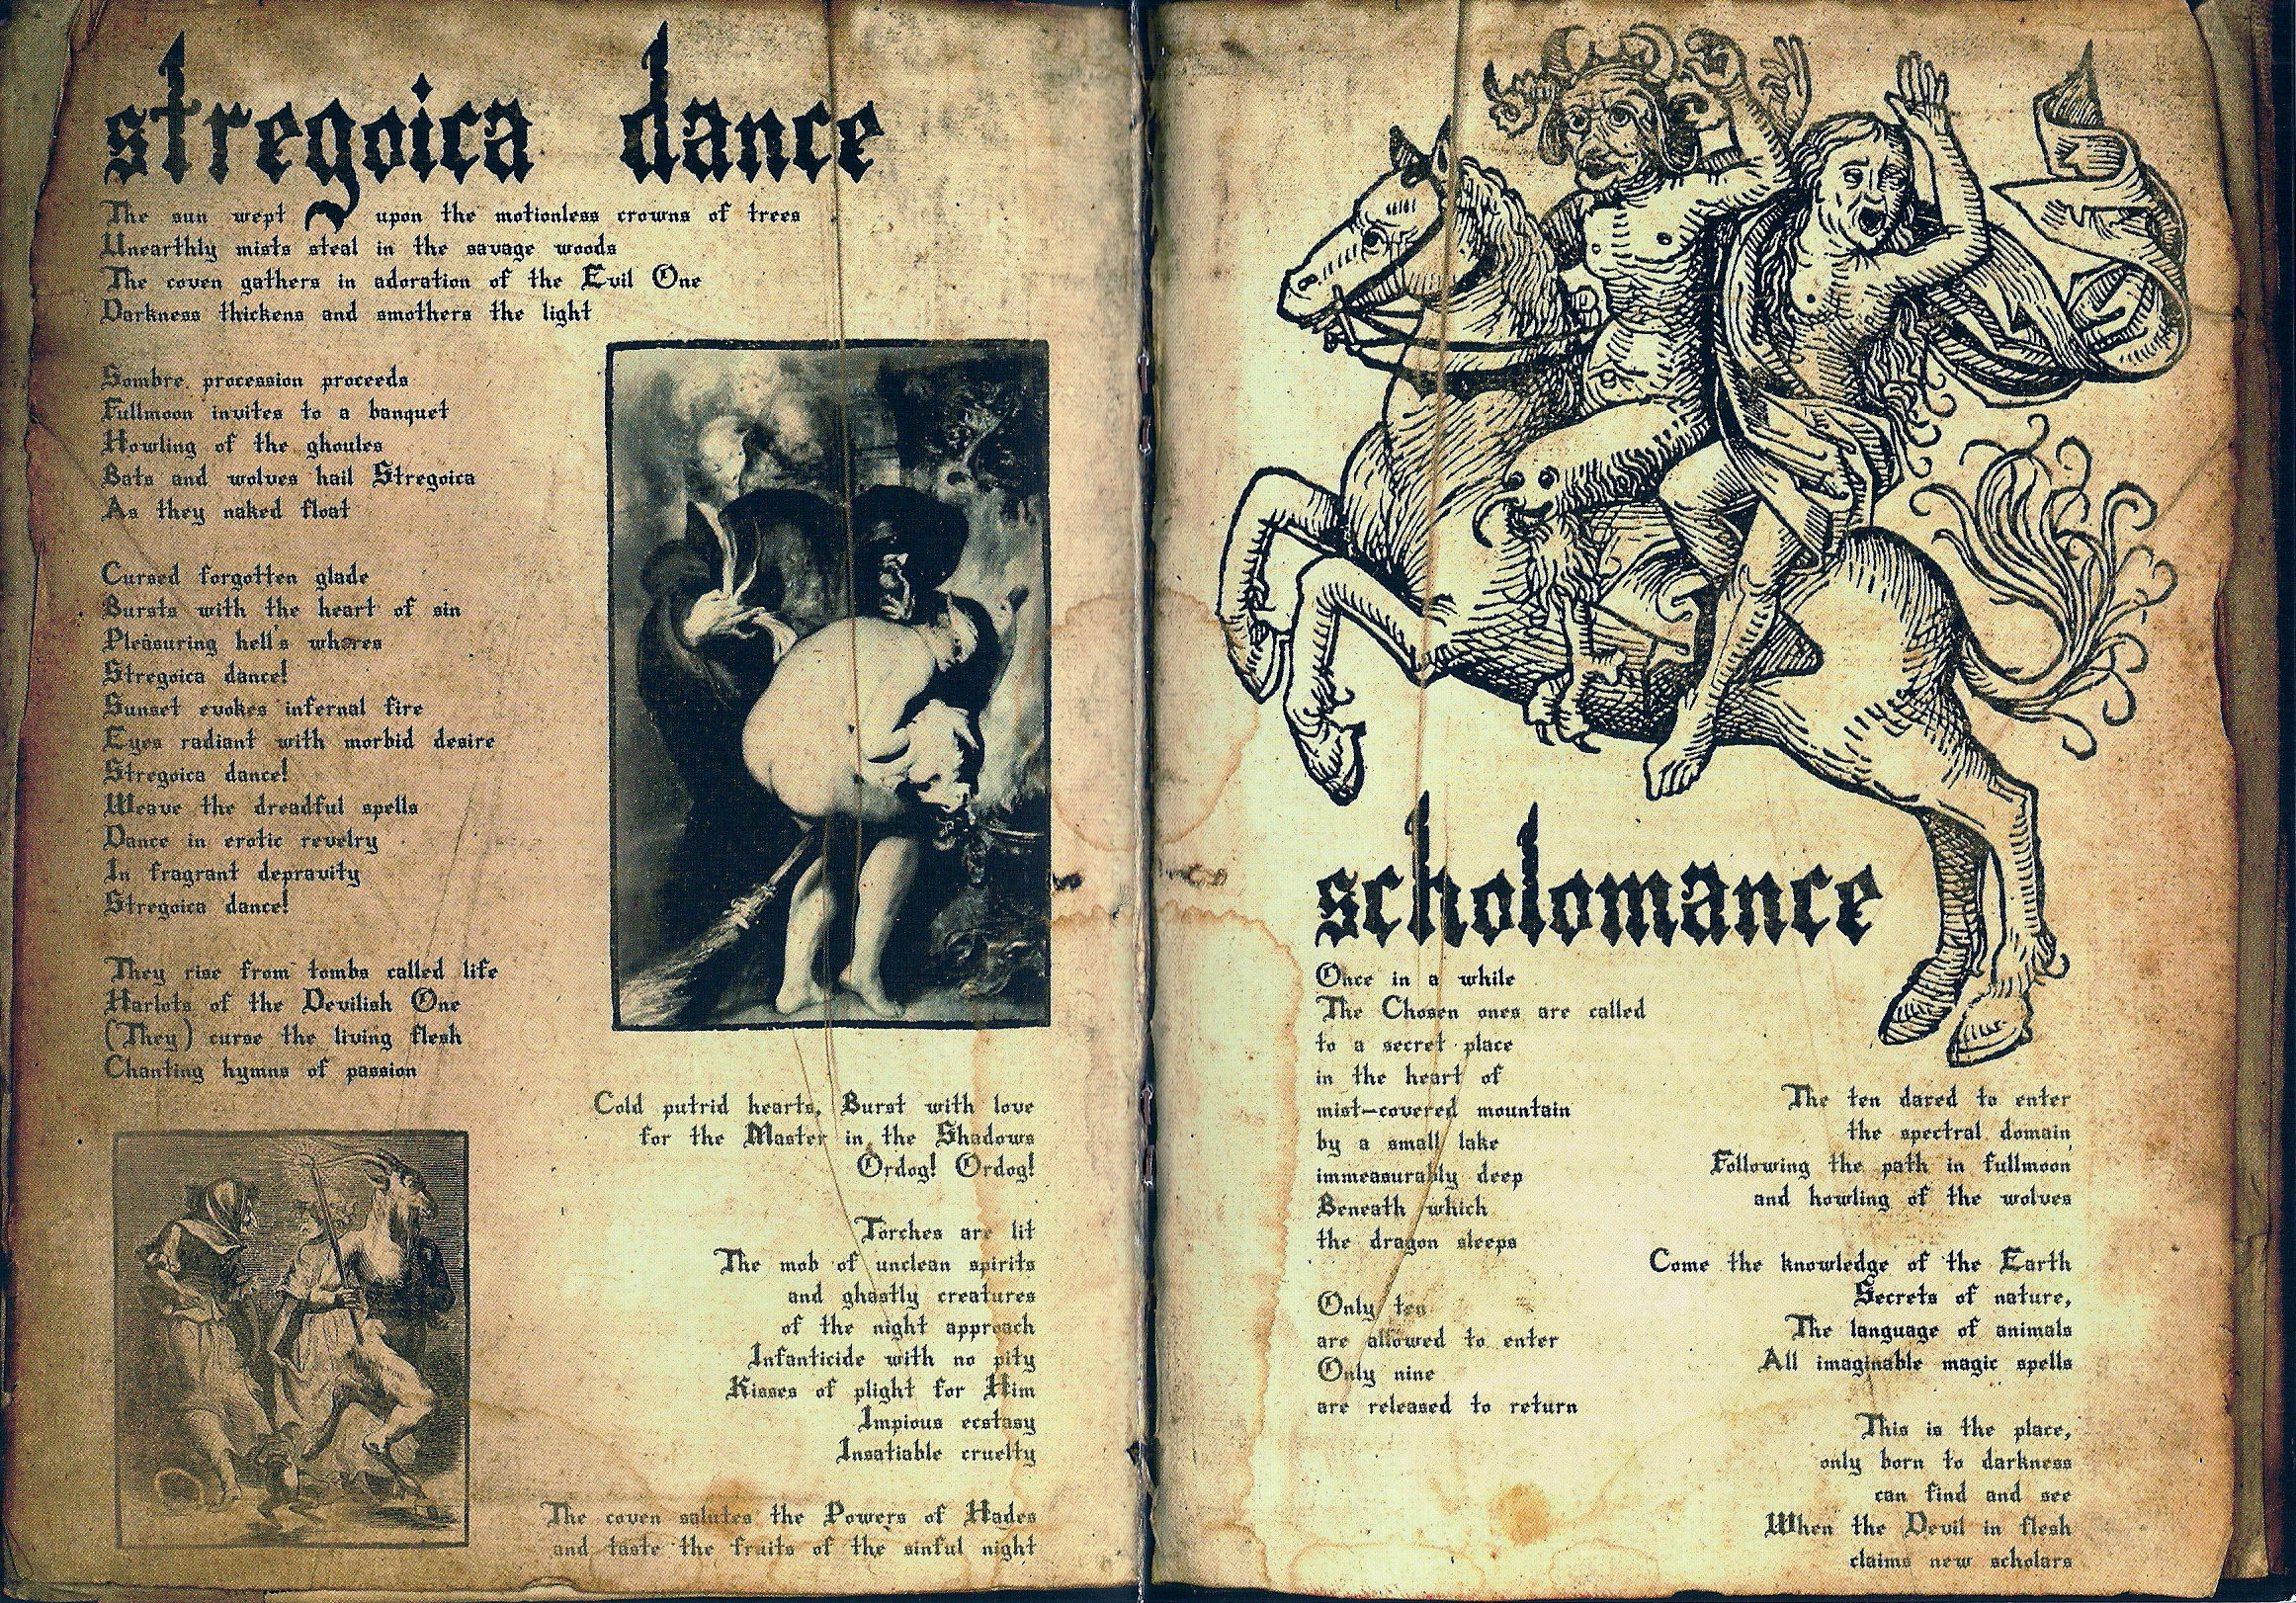 stregoica dance
The sun wept upon the motionless crowns of trees
Unearthly mists steal in the savage woods
The coven gathers in adoration of the Evil One
Darkness thickens and smothers the light
Sombre procession proceeds
Fullmoon invites to a banquet
Howling of the ghoules
Bats and wolves hail Stregoica
As they naked float
Cursed forgotten glade
Bursts with the heart of sin
Pleasuring hell's whores
Stregoica dance!
Sunset evokes infernal fire
Eyes radiant with morbid desire
Stregoica dance!
Weave the dreadful spells
Dance in erotic revelry
In fragrant depravity
Stregoica dance!
They rise from tombs called life
Harlots of the Devilish One
(They) curse the living flesh
Chanting hymns of passion
Cold putrid hearts, Burst with love
for the Master in the Shadows
Ordog! Ordog!
Torches are lit
The mob of unclean spirits
and ghastly creatures
of the night approach
Infanticide with no pity
Kisses of plight for Him
Impious ecstasy
Insatiable cruelty
The coven salutes the Powers of Hades
and taste the fruits of the sinful night
scholomance
Once in a while
The Chosen ones are called
to a secret place
in the heart of
mist-covered mountain
by a small lake
immeasurably deep
Beneath which
the dragon sleeps
Only ten
are allowed to enter
Only nine
are released to return
The ten dared to enter
the spectral domain
Following the path in fullmoon
and howling of the wolves
Come the knowledge of the Earth
Secrets of nature,
The language of animals
All imaginable magic spells
This is the place,
only born to darkness
can find and see
When the Devil in flesh
claims new scholars